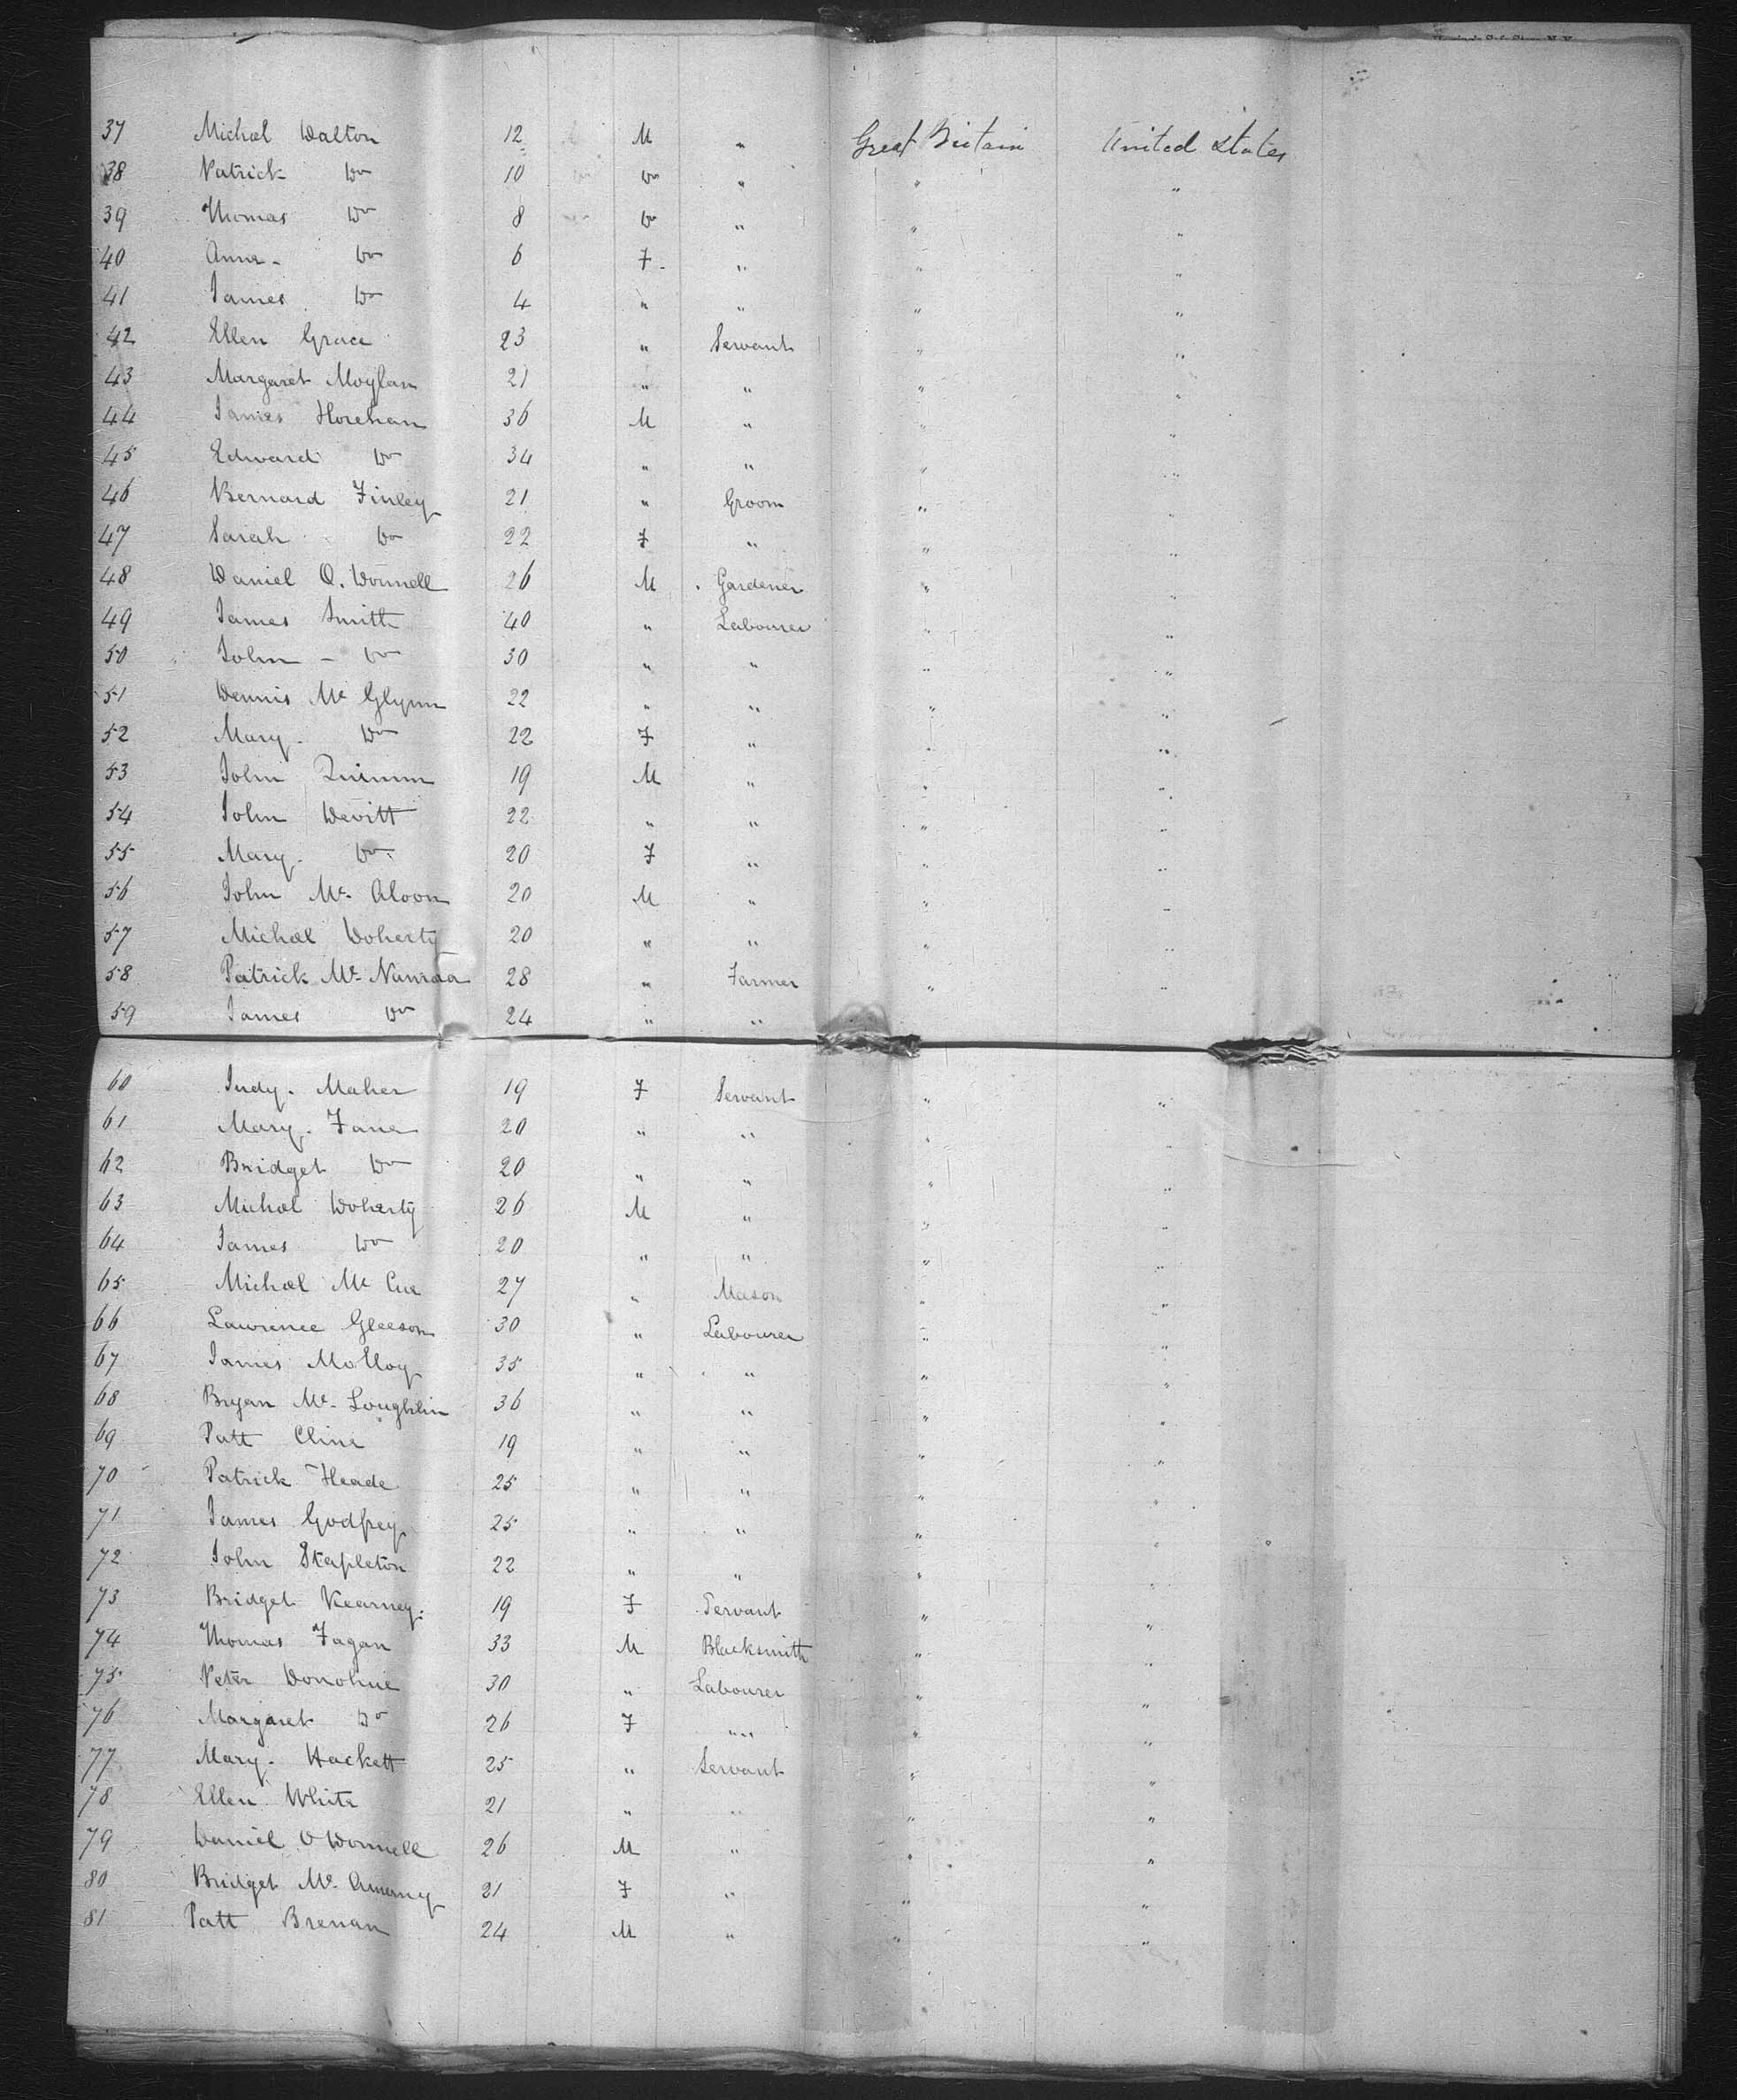 37 Michæl Walton 12 M " Great Britain United States
38 Patrick Do 10 Do " " "
39 Thomas Do 8 Do " " "
40 Anne - Do 6 F - " " "
41 James Do 4 " " " "
42 Ellen Grace 23 " Servant " "
43 Margaret Moylan 21 " " " "
44 James Horehan 36 M " " "
45 Edward Do 34 " " " "
46 Bernard Finley 21 " Groom " "
47 Sarah Do 22 F " " "
48 Daniel O. Donnell 26 M Gardener " "
49 James Smith 40 " Labourer " "
50 John - Do 30 " " " "
51 Dennis Mc Glynn 22 " " " "
52 Mary - Do 22 F " " "
53 John Quinn 19 M " " "
54 John Devitt 22 " " " "
55 Mary - Do 20 F " " "
56 John Mc Aloon 20 M " " "
57 Michæl Doherty 20 " " " "
58 Patrick Mc 28 " Farmer " "
59 James Do 24 " " " "
60 Judy. Maher 19 F Servant " "
61 Mary. 20 " " " "
62 Bridget Do 20 " " " "
63 Michæl Doherty 26 M " " "
64 James Do 20 " " " "
65 Michæl Mc Cue 27 " Mason " "
66 Lawrence Gleeson 30 " Labourer " "
67 James Molloy 35 " " " "
68 Bryan Mc Loughlin 36 " " " "
69 Patt Cline 19 " " " "
70 Patrick Heade 25 " " " "
71 James Godfrey 25 " " " "
72 John Stapleton 22 " " " "
73 Bridget Kearney. 19 F Servant " "
74 Thomas Fagan 33 M Blacksmith " "
75 Peter Donohue 30 " Labourer " "
76 Margaret Do 26 F " " "
77 Mary - Hackett 25 " Servant " "
78 Ellen White 21 " " " "
79 Daniel O Donnell 26 M " " "
80 Bridget Mc 21 F " " "
81 Patt Brenan 24 M " " "